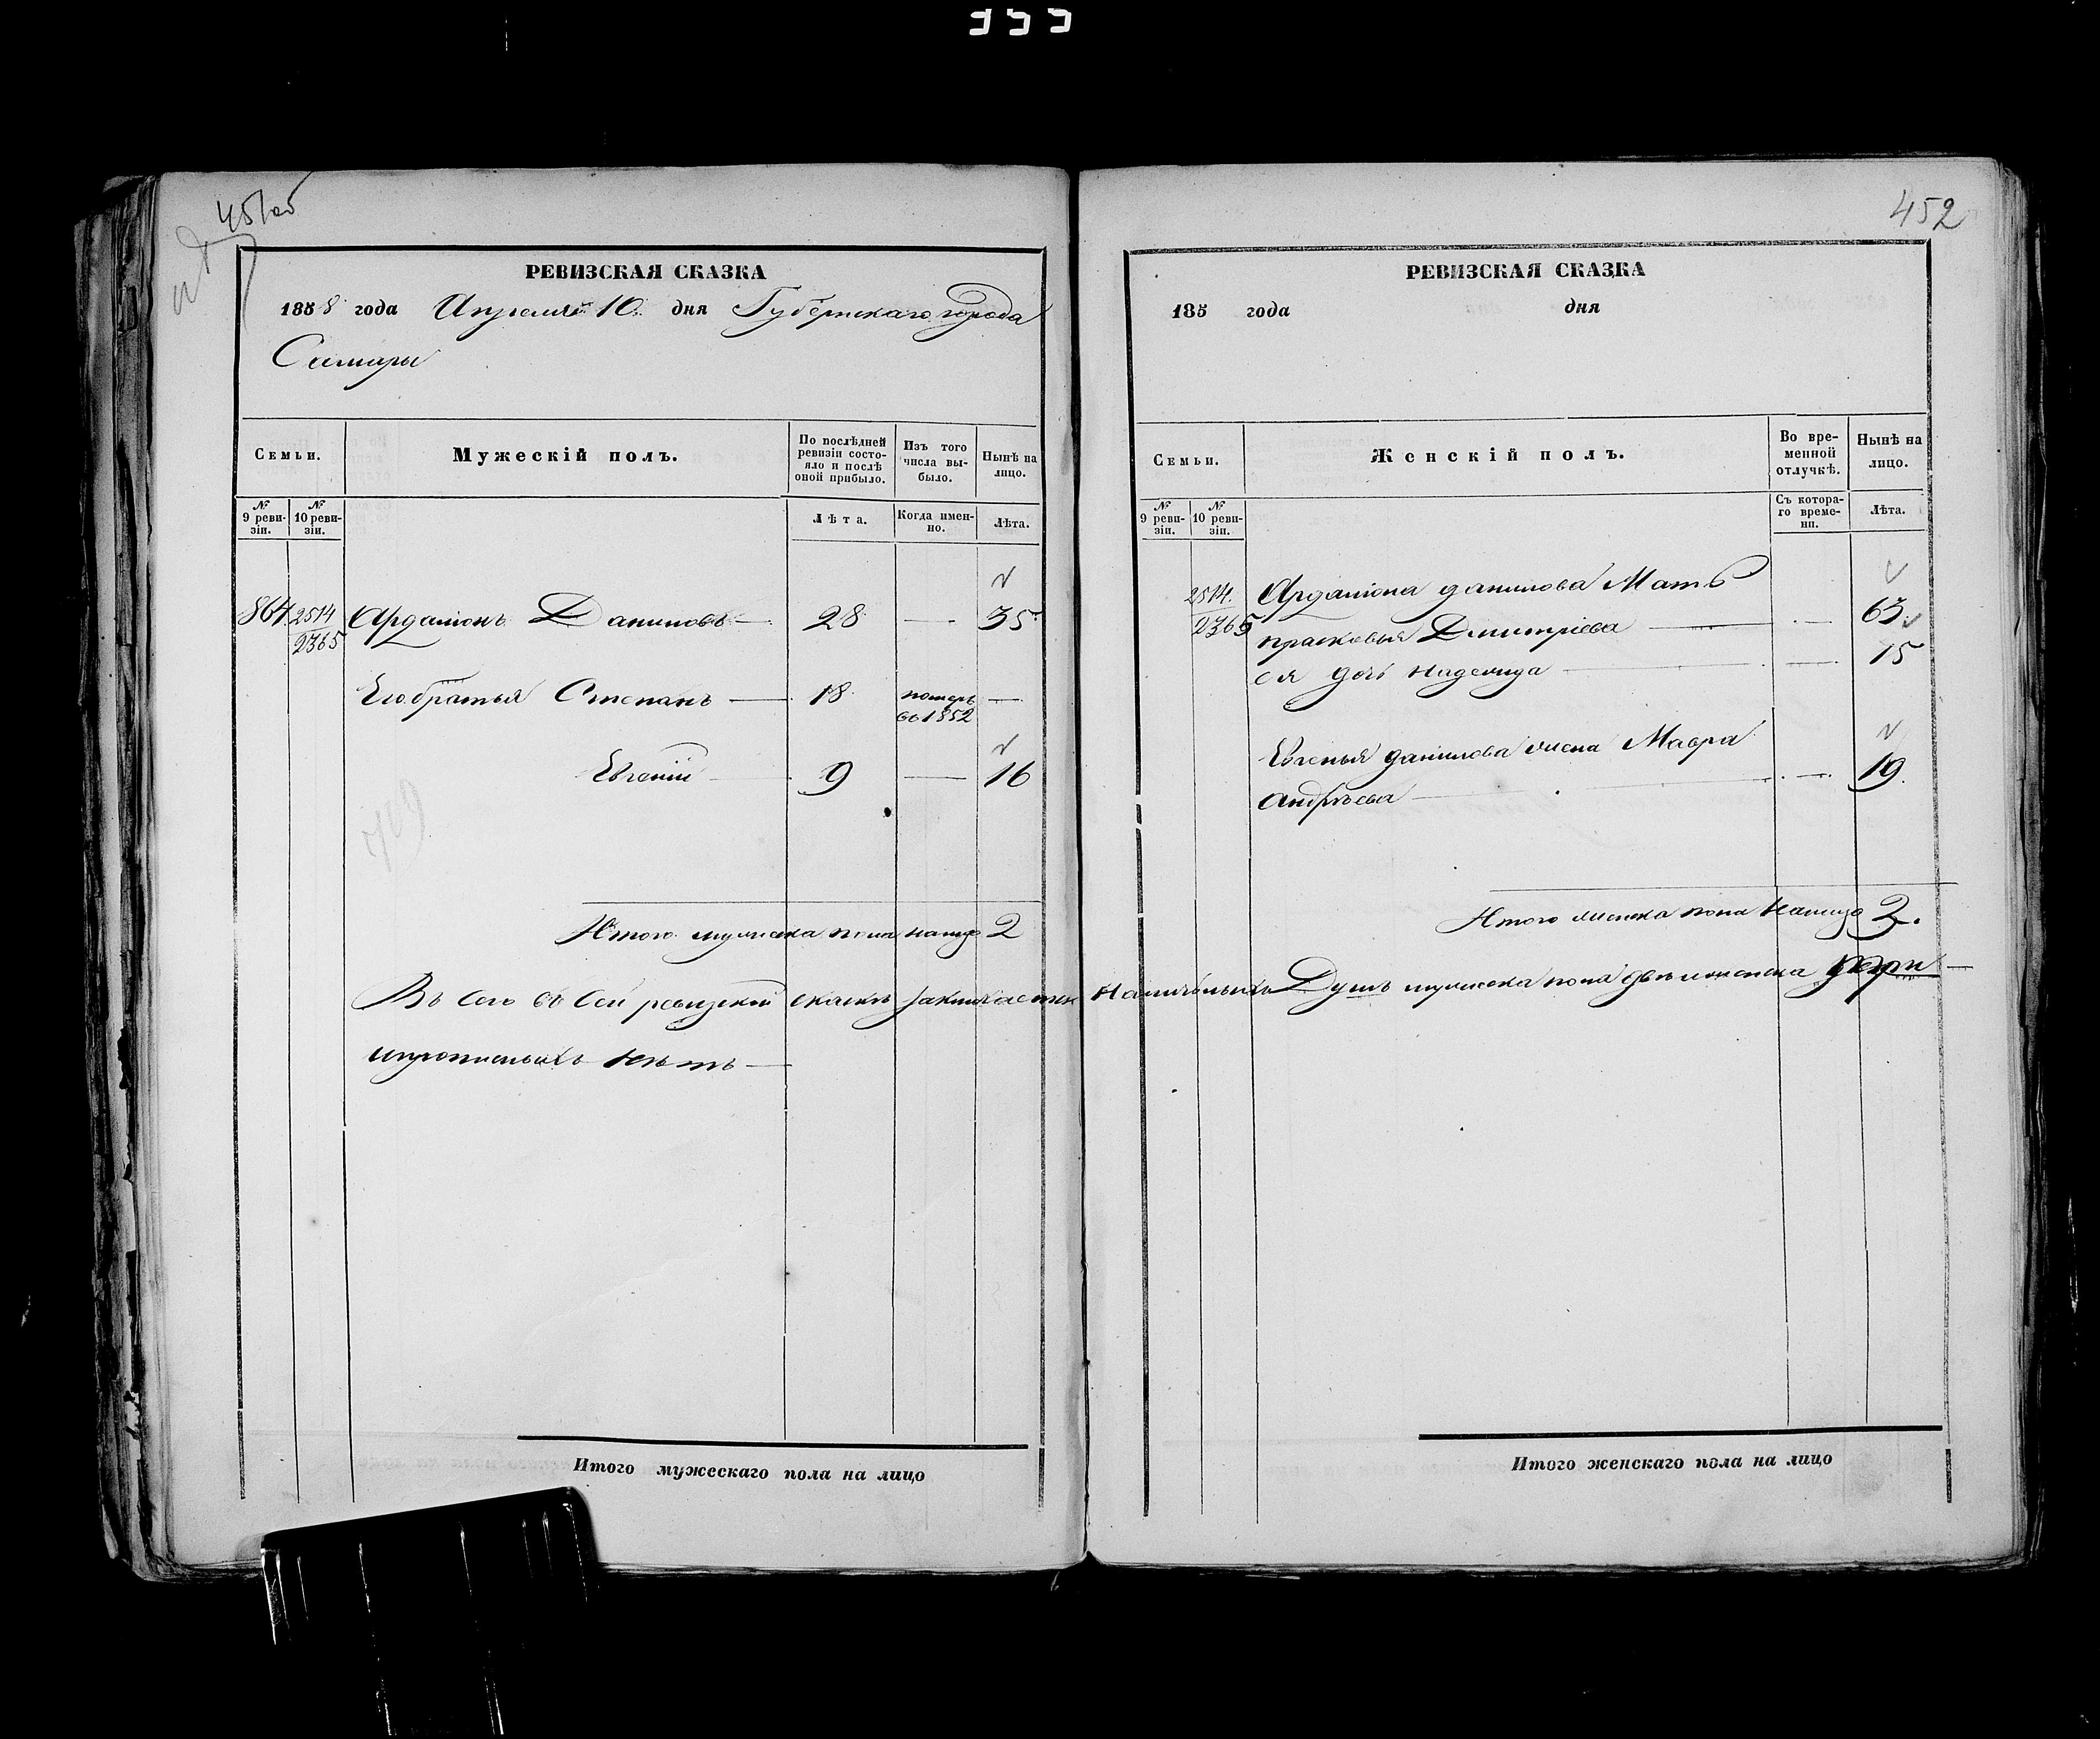 451об
РЕВИЗСКАЯ СКАЗКА
1858 года Апреля 10 дня Губернскаго города
Самары
Семьи.
Мужескій полъ.
По послѣдней ревизіи состояло и послѣ оной прибыло.
Изъ того числа выбыло.
Нынѣ на лицо.
№ 9 ревизіи.
№ 10 ревизіи.
Лѣта.
Когда именно.
Лѣта.
864 2514 Ардаліонъ Даниловъ 28 — 35
2365
Его братья Степанъ 18 померъ —
во 1852
Евгеній 9 — 16
Итого мужеска пола налицо 2
Въ сего въ сей ревизской скаскѣ заключается наличныхъ Душъ мужеска пола двѣ и женска три
и прописныхъ нѣтъ
Итого мужескаго пола на лицо
452
РЕВИЗСКАЯ СКАЗКА
185 года дня
Семьи.
Женскій полъ.
Во временной отлучкѣ.
Нынѣ на лицо.
№ 9 ревизіи.
№ 10 ревизіи.
Съ котораго времени.
Лѣта.
2514. Ардаліона данилова Мать
2365 прасковья Дмитріева — 63.
ея дочь надежда — 15
Евгенья данилова жена Мавра
андрѣева — 19.
Итого женска пола налицо 3.
Итого женскаго пола на лицо